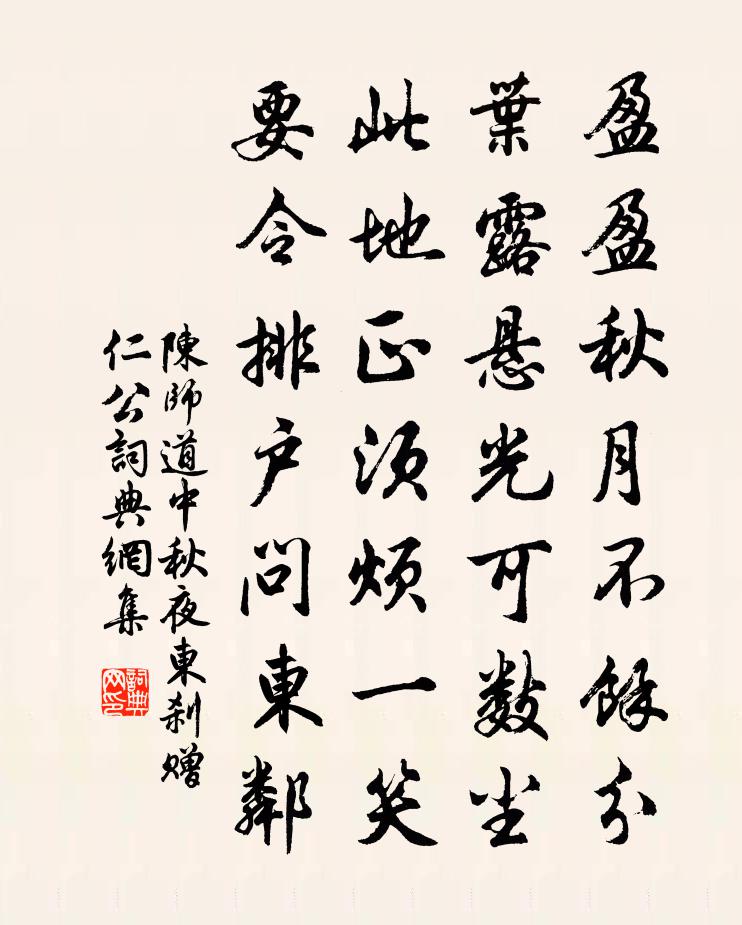 盈盈秋月不餘分
葉露懸光可數塵
此地正須煩一笑
要令排戶問東鄰
陳師道中秋夜東刹贈
仁公詞典網集
詞典網印